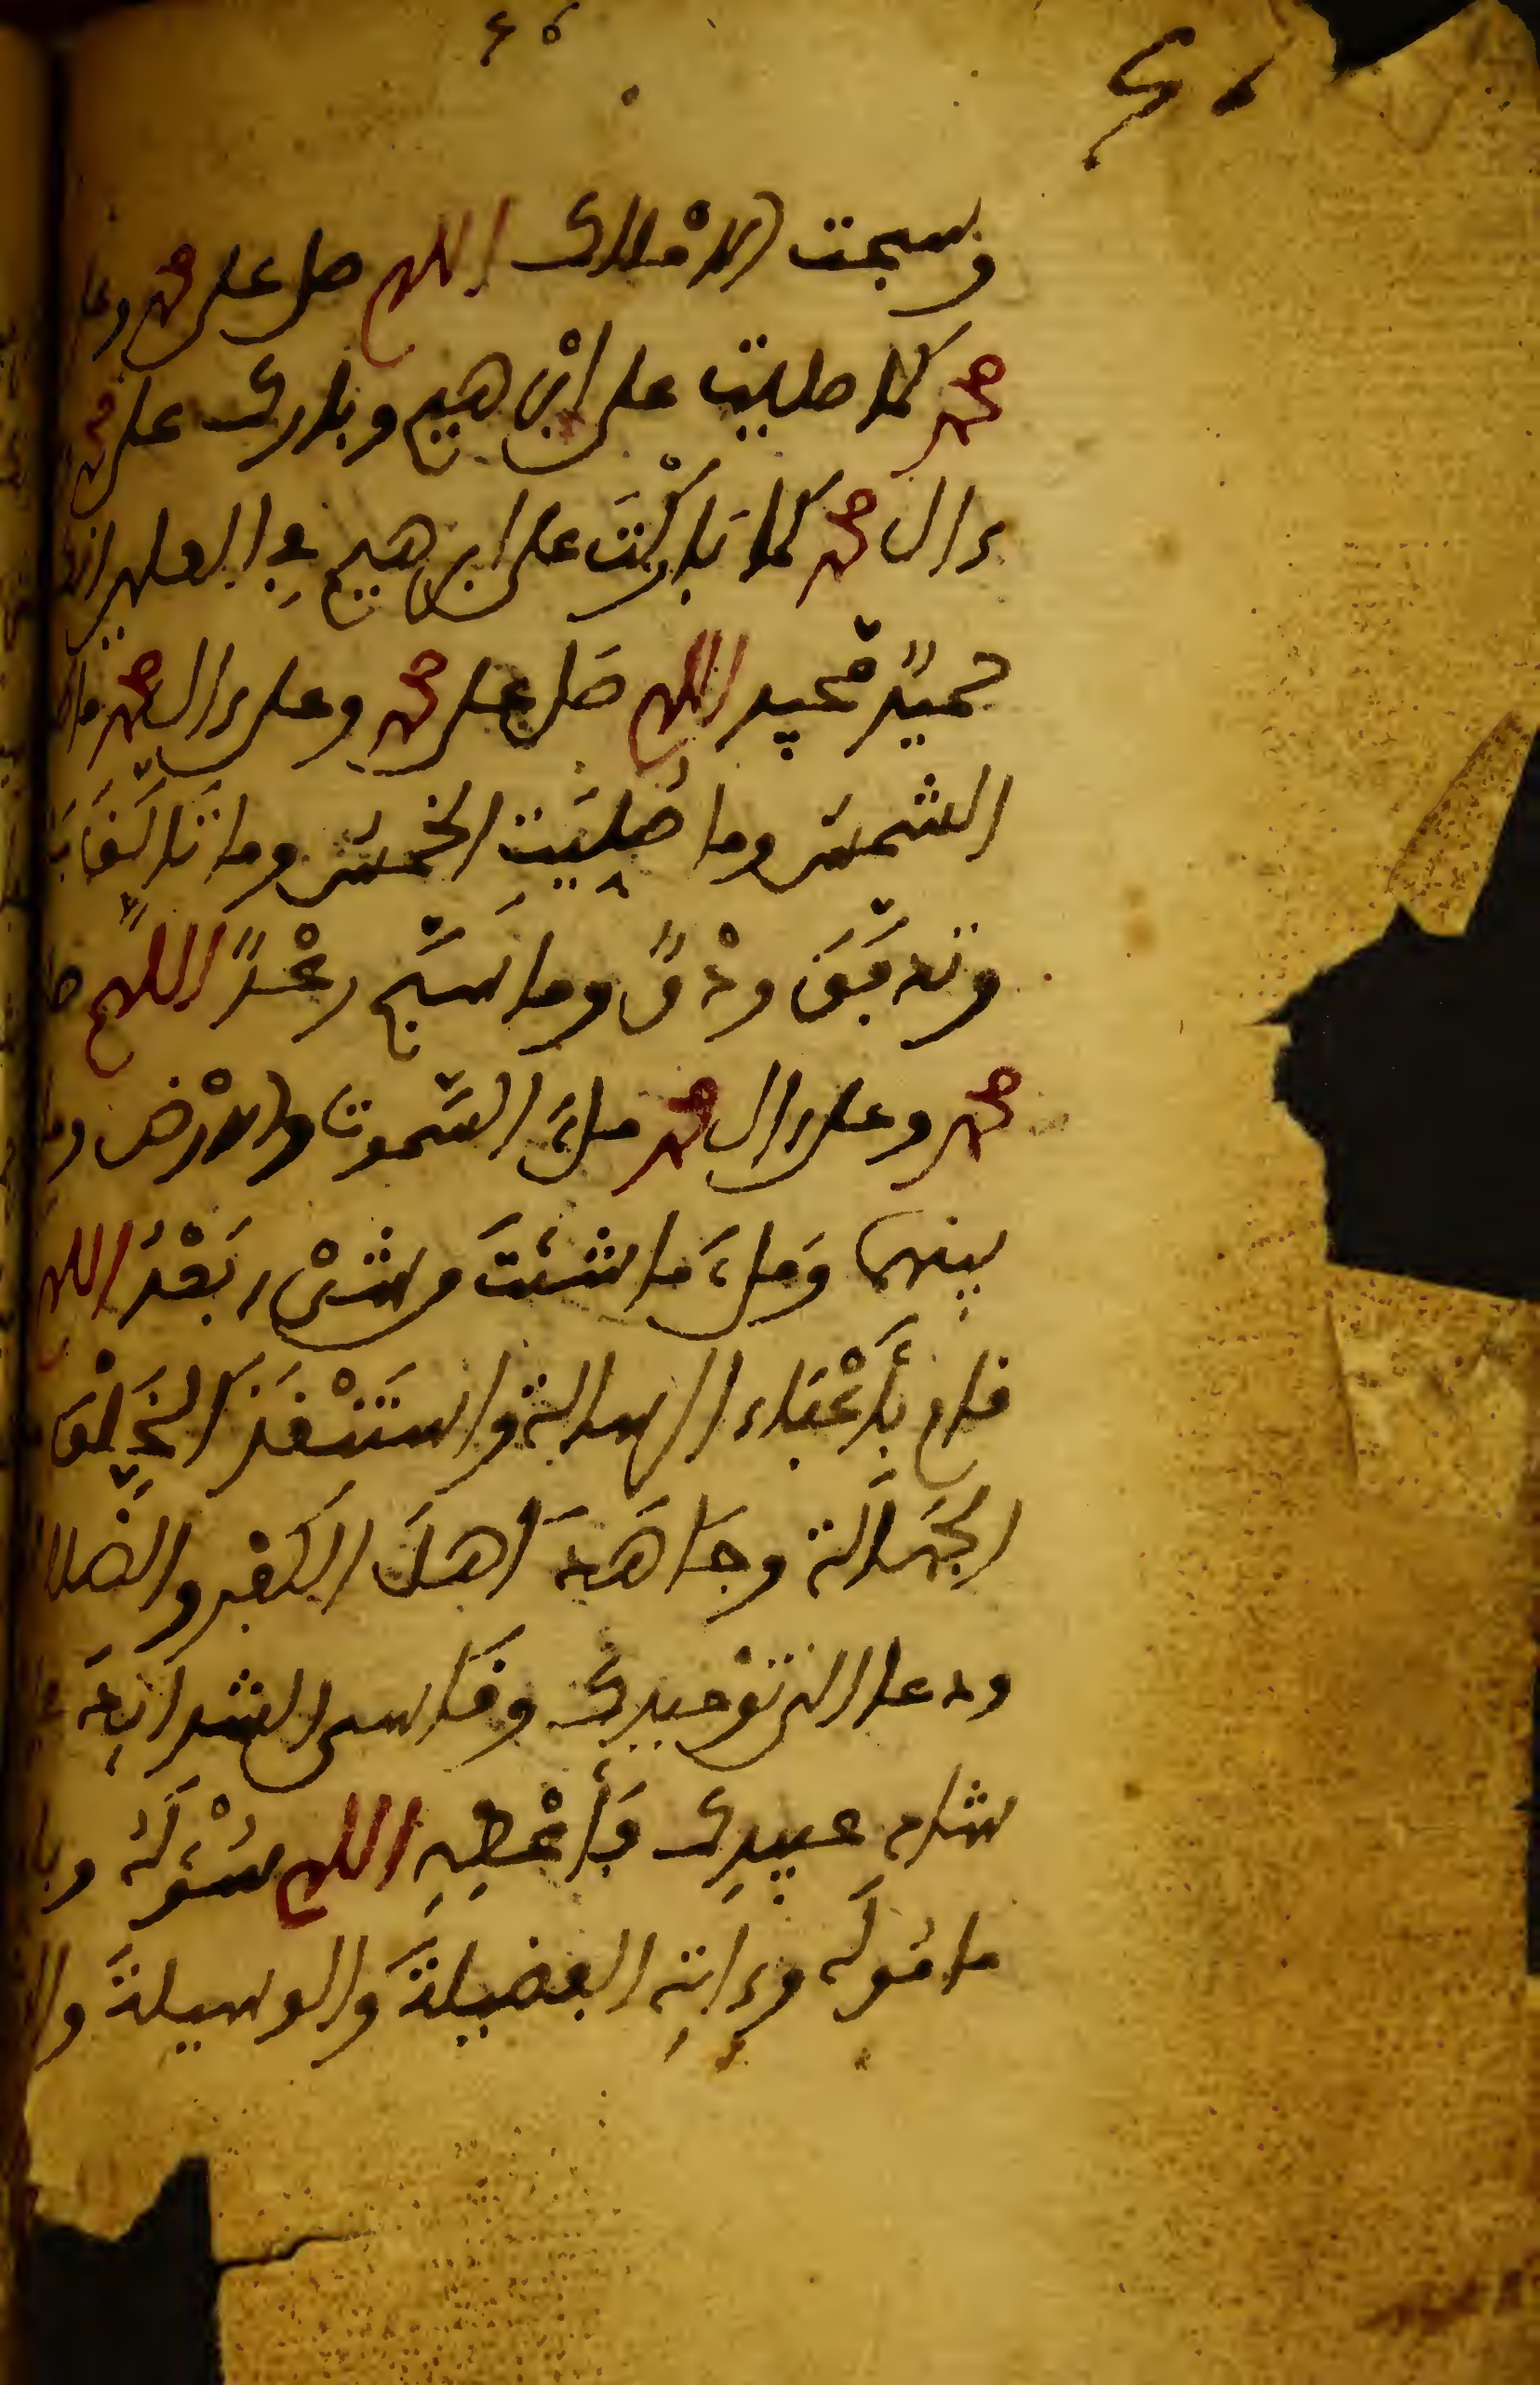 وسبحت الاملاك اللهم صل على محمد وعلى
محمد كما صليت على ابْرهيم وبارك على محمد
ءال محمد كما بَاركْتَ على ابرهيم في العلمين انك
حميدٌ مجيد اللهم صَل على محمد وعلى ءال محمد ما
الشمس وما صُلِّيَتِ الخَمسُ وما تَاَلَّقَ
وتدفَّقَ ودْقٌ وما سَبَّح رعْدٌ اللهم
محمد وعلى ءال محمد ملءَ السَّموت والارْض وما
بينهما وَملءَ مَا شئتَ من شىْء بَعْدُ اللهم
قام بأَعْبَاء الرسالة واستَنْقَذَ الخَلْقَ
الجَهَالَة وجَاهَدَ اهلَ الكفر والضلا
ودعا الى توْحيدك وقَاسى الشدائِدَ
شاد عبيدِك فأَعْطِهِ اللهم سُؤْلَهُ
مامُولَه وءاتِهِ الفضيلةَ والوسيلةَ وا